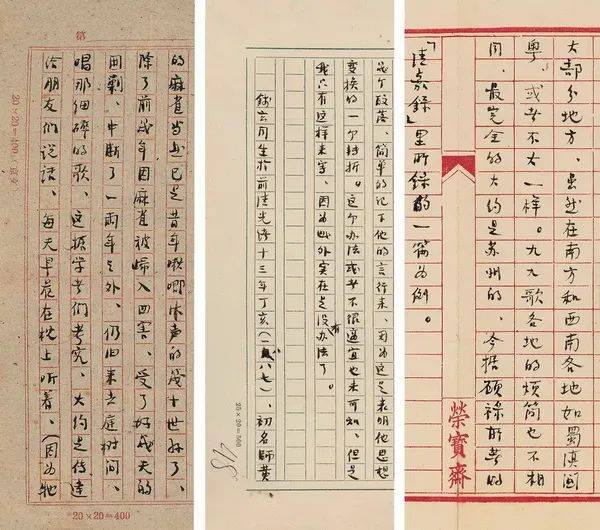 大部分地方、虽然在南方和西南各地如蜀滇闽
粤、或者不大一样。九九歌各地的烦简也不相
同、最完全的大约是苏州的、今据顾禄所著的
「清嘉录」里所录的一篇为例。
榮寶齋
段落、简单的记下他的言行来、因为这是表明他思想
变换的一个转折。这个办法或者不很适宜也未可知、但是
我只有这样来写、因为此外实在是没有办法了。
钱玄同生于前清光绪十三年丁亥(一八八七)、初名师黄
25×20=500
第
的麻雀当然已是昔年啾唧作声的几十世孙了、
除了前几年因麻雀被归入四害、受了好几天的
围剿、中断了一两年之外、仍旧来去庭树间、
唱那细碎的歌。这据学者们考究、大约是传达
给朋友们说话、每天早晨在枕上听着、(因为牠
20×20=400
20×20=400